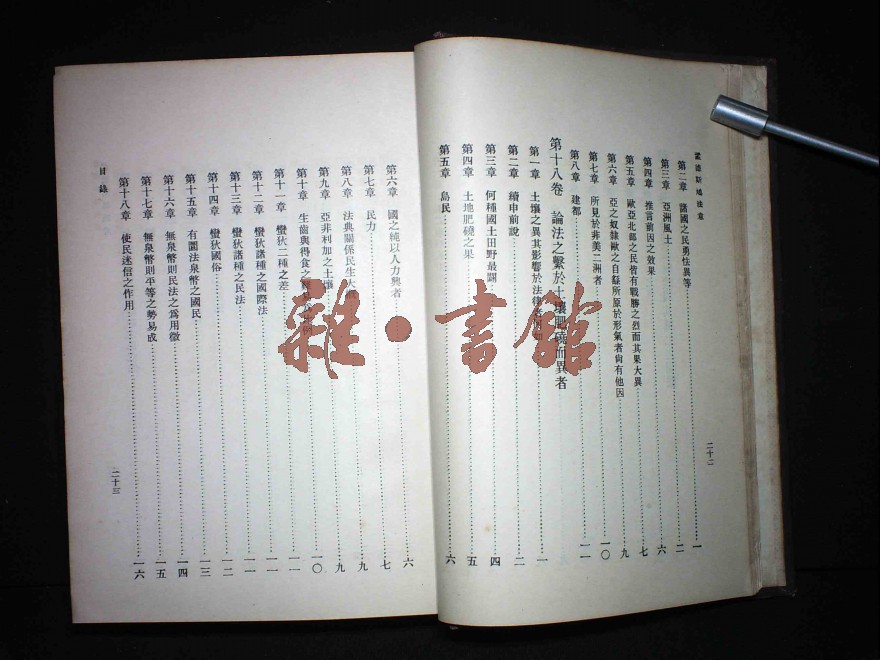 孟德斯鳩法意
第二章 諸國之民勇怯異等 二
第三章 亞洲風土 六
第四章 推言前因之效果 七
第五章 歐亞北部之民皆有戰勝之烈而其果大異 九
第六章 亞之奴隸歐之自繇所原於形氣者尙有他因 一〇
第七章 所見於非美二洲者
第八章 建都 一一
第十八卷 論法之繫於土壤肥磽而異者
第一章 土壤之異其影響於法律者何如 一
第二章 續申前說 二
第三章 何種國土田野最闢 四
第四章 土地肥磽之果 五
第五章 島民 六
二十二
第六章 國之純以人力興者 六
第七章 民力 七
第八章 法典關係民生大 九
第九章 亞非利加之土壤 九
第十章 生齒與得食之 一〇
第十一章 蠻狄二種之差 一一
第十二章 蠻狄諸種之國際法 一一
第十三章 蠻狄諸種之民法 一一
第十四章 蠻狄國俗 一二
第十五章 有圜法泉幣之國民 一三
第十六章 無泉幣則民法之爲用微 一四
第十七章 無泉幣則平等之勢易成 一五
第十八章 使民迷信之作用 一六
目錄
二十三
雜·書館